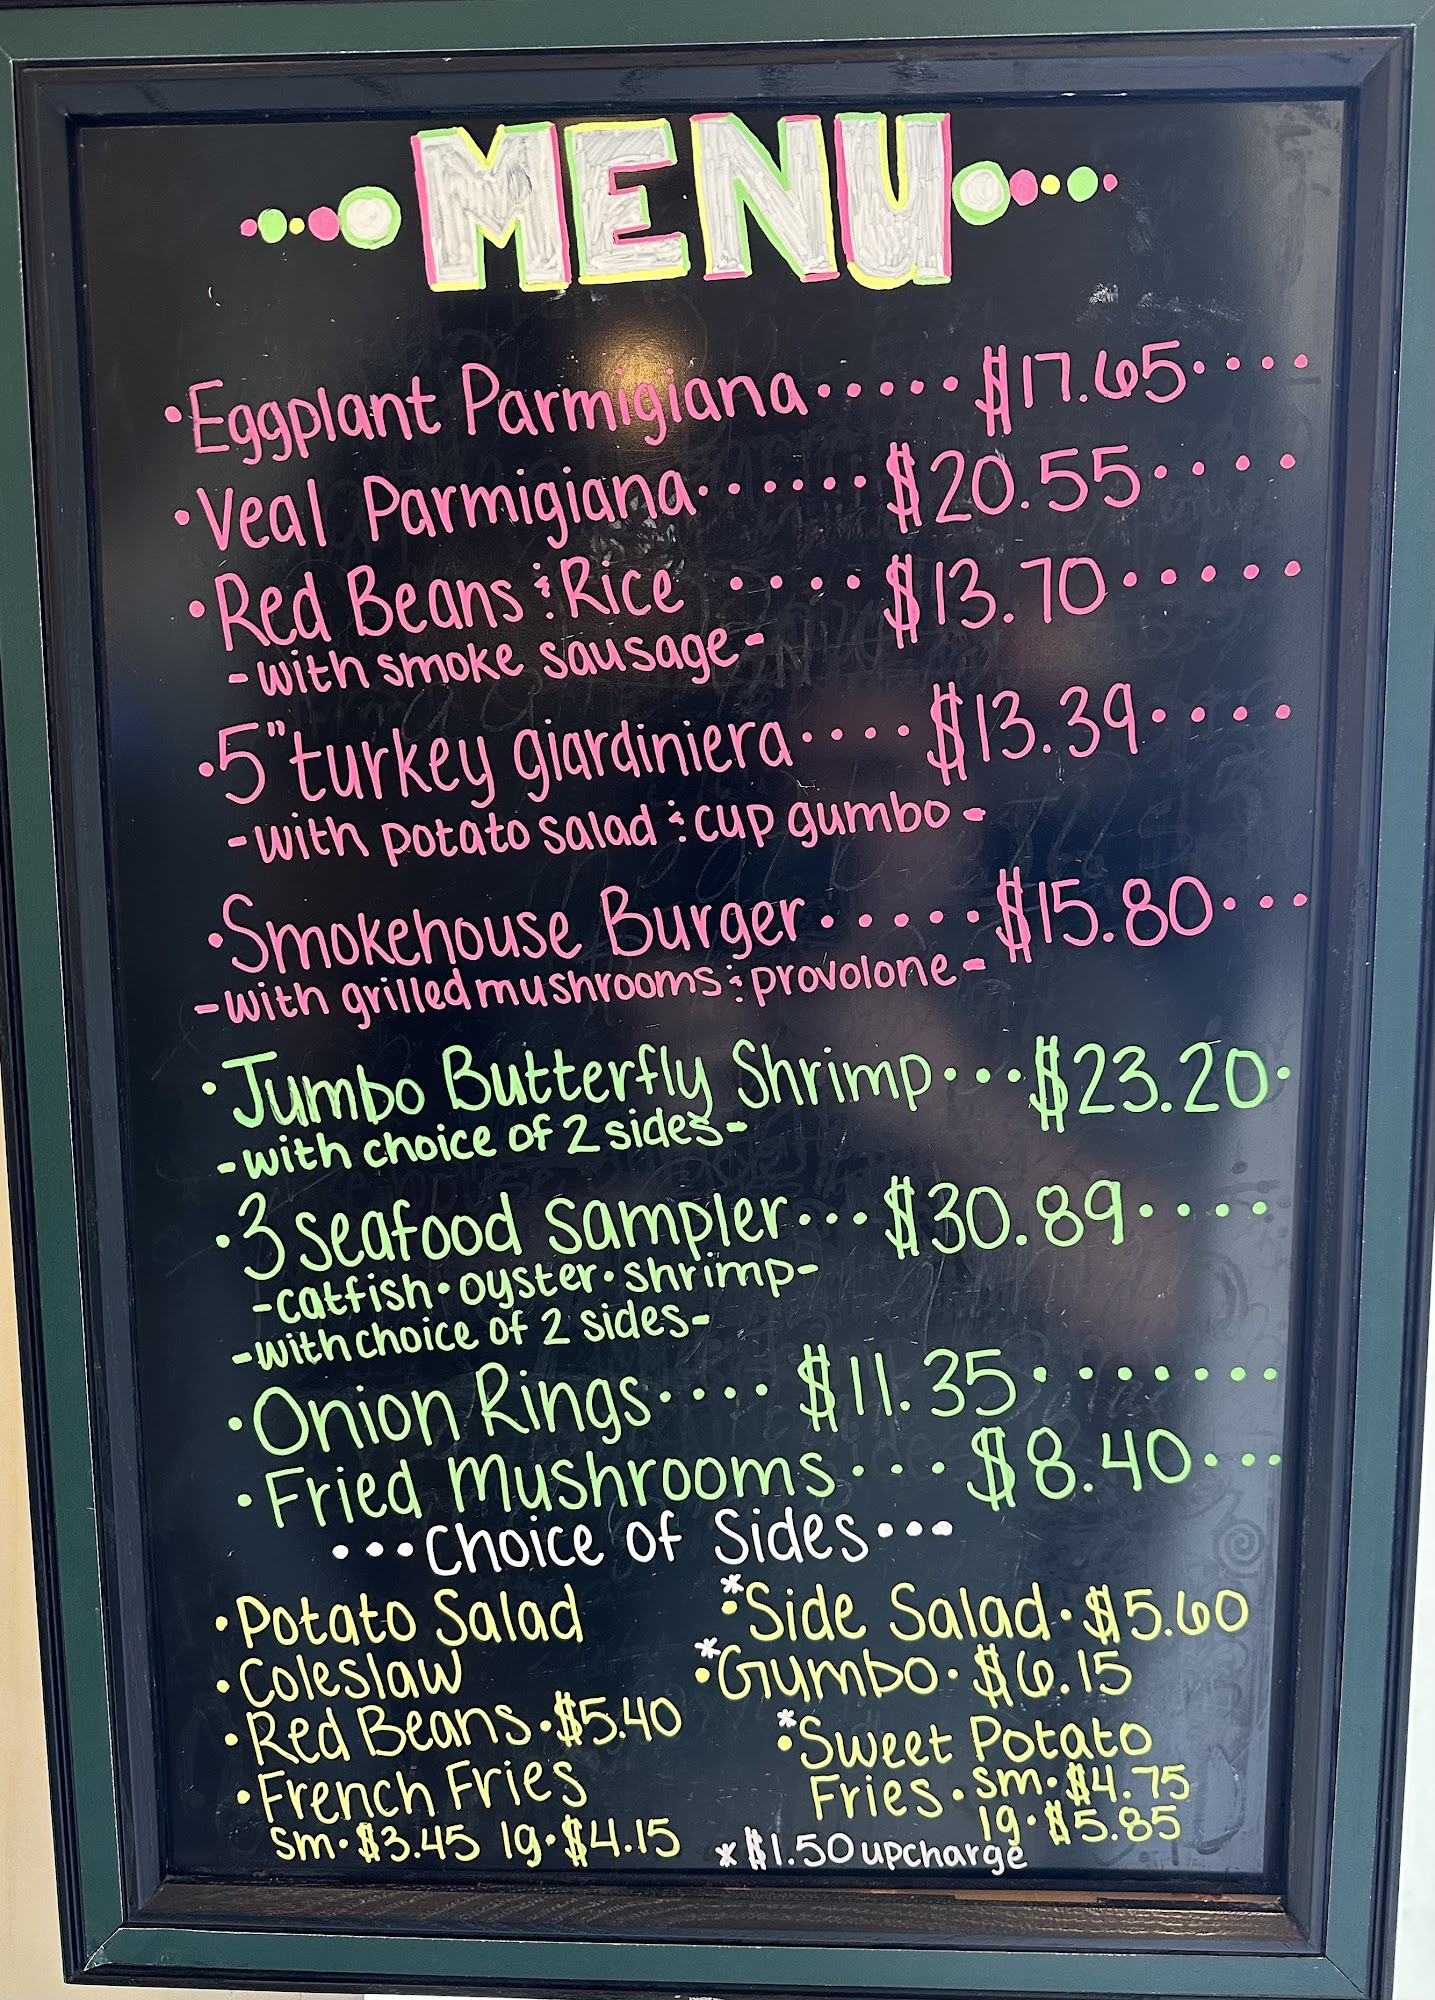 MENU
•Eggplant Parmigiana.....$17.65....
•Veal Parmigiana......$20.55....
•Red Beans & Rice ....$13.70.....
-with smoke sausage-
•5" turkey giardiniera....$13.39....
-with potato salad & cup gumbo-
•Smokehouse Burger.....$15.80...
-with grilled mushrooms & provolone-
•Jumbo Butterfly Shrimp...$23.20.
-with choice of 2 sides-
•3 seafood sampler...$30.89....
-catfish•oyster•shrimp-
-with choice of 2 sides-
•Onion Rings....$11.35.......
•Fried Mushrooms...$8.40...
...Choice of Sides...
•Potato Salad
•Coleslaw
•Red Beans•$5.40
•French Fries
sm•$3.45 lg•$4.15
*•Side Salad•$5.60
*•Gumbo•$6.15
*•Sweet Potato
Fries•sm•$4.75
lg•$5.85
*$1.50 upcharge